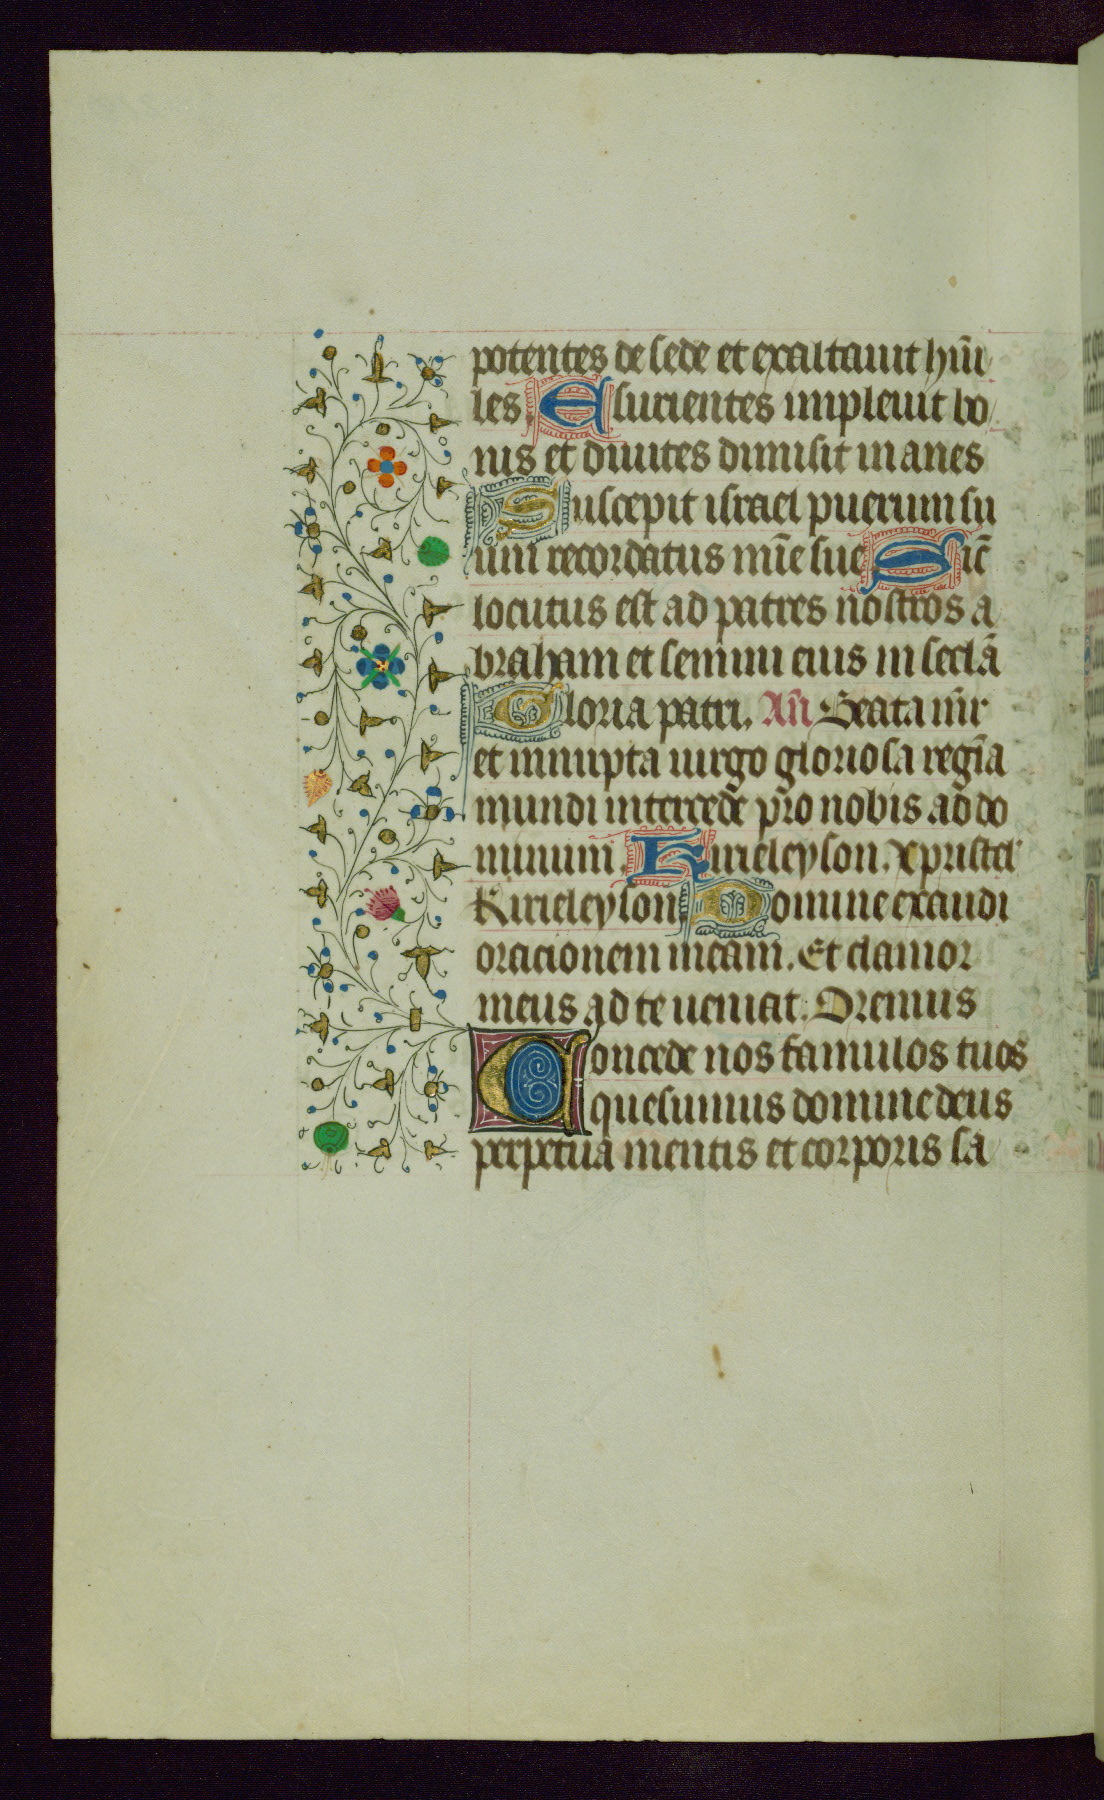 potentes de sede et exaltauit hūi
les. Esurientes impleuit bo
nis et diuites dimisit inanes
Suscepit israel puerum su
um recordatus mīe sue Sic̄
locutus est ad patres nostros a
braham et semini eius in seclā
Gloria patri. Añ Beata mr̄
et innupta uirgo gloriosa regīa
mundi intercede pro nobis ad do
minum. Kirieleyson. Xpristel'
Kirieleyson Domine exaudi
oracionem meam. Et clamor
meus ad te ueniat. Oremus
Concede nos famulos tuos
quesumus domine deus
perpetua mentis et corporis sa